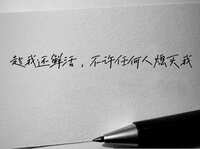 趁我还鲜活，不许任何人熄灭我